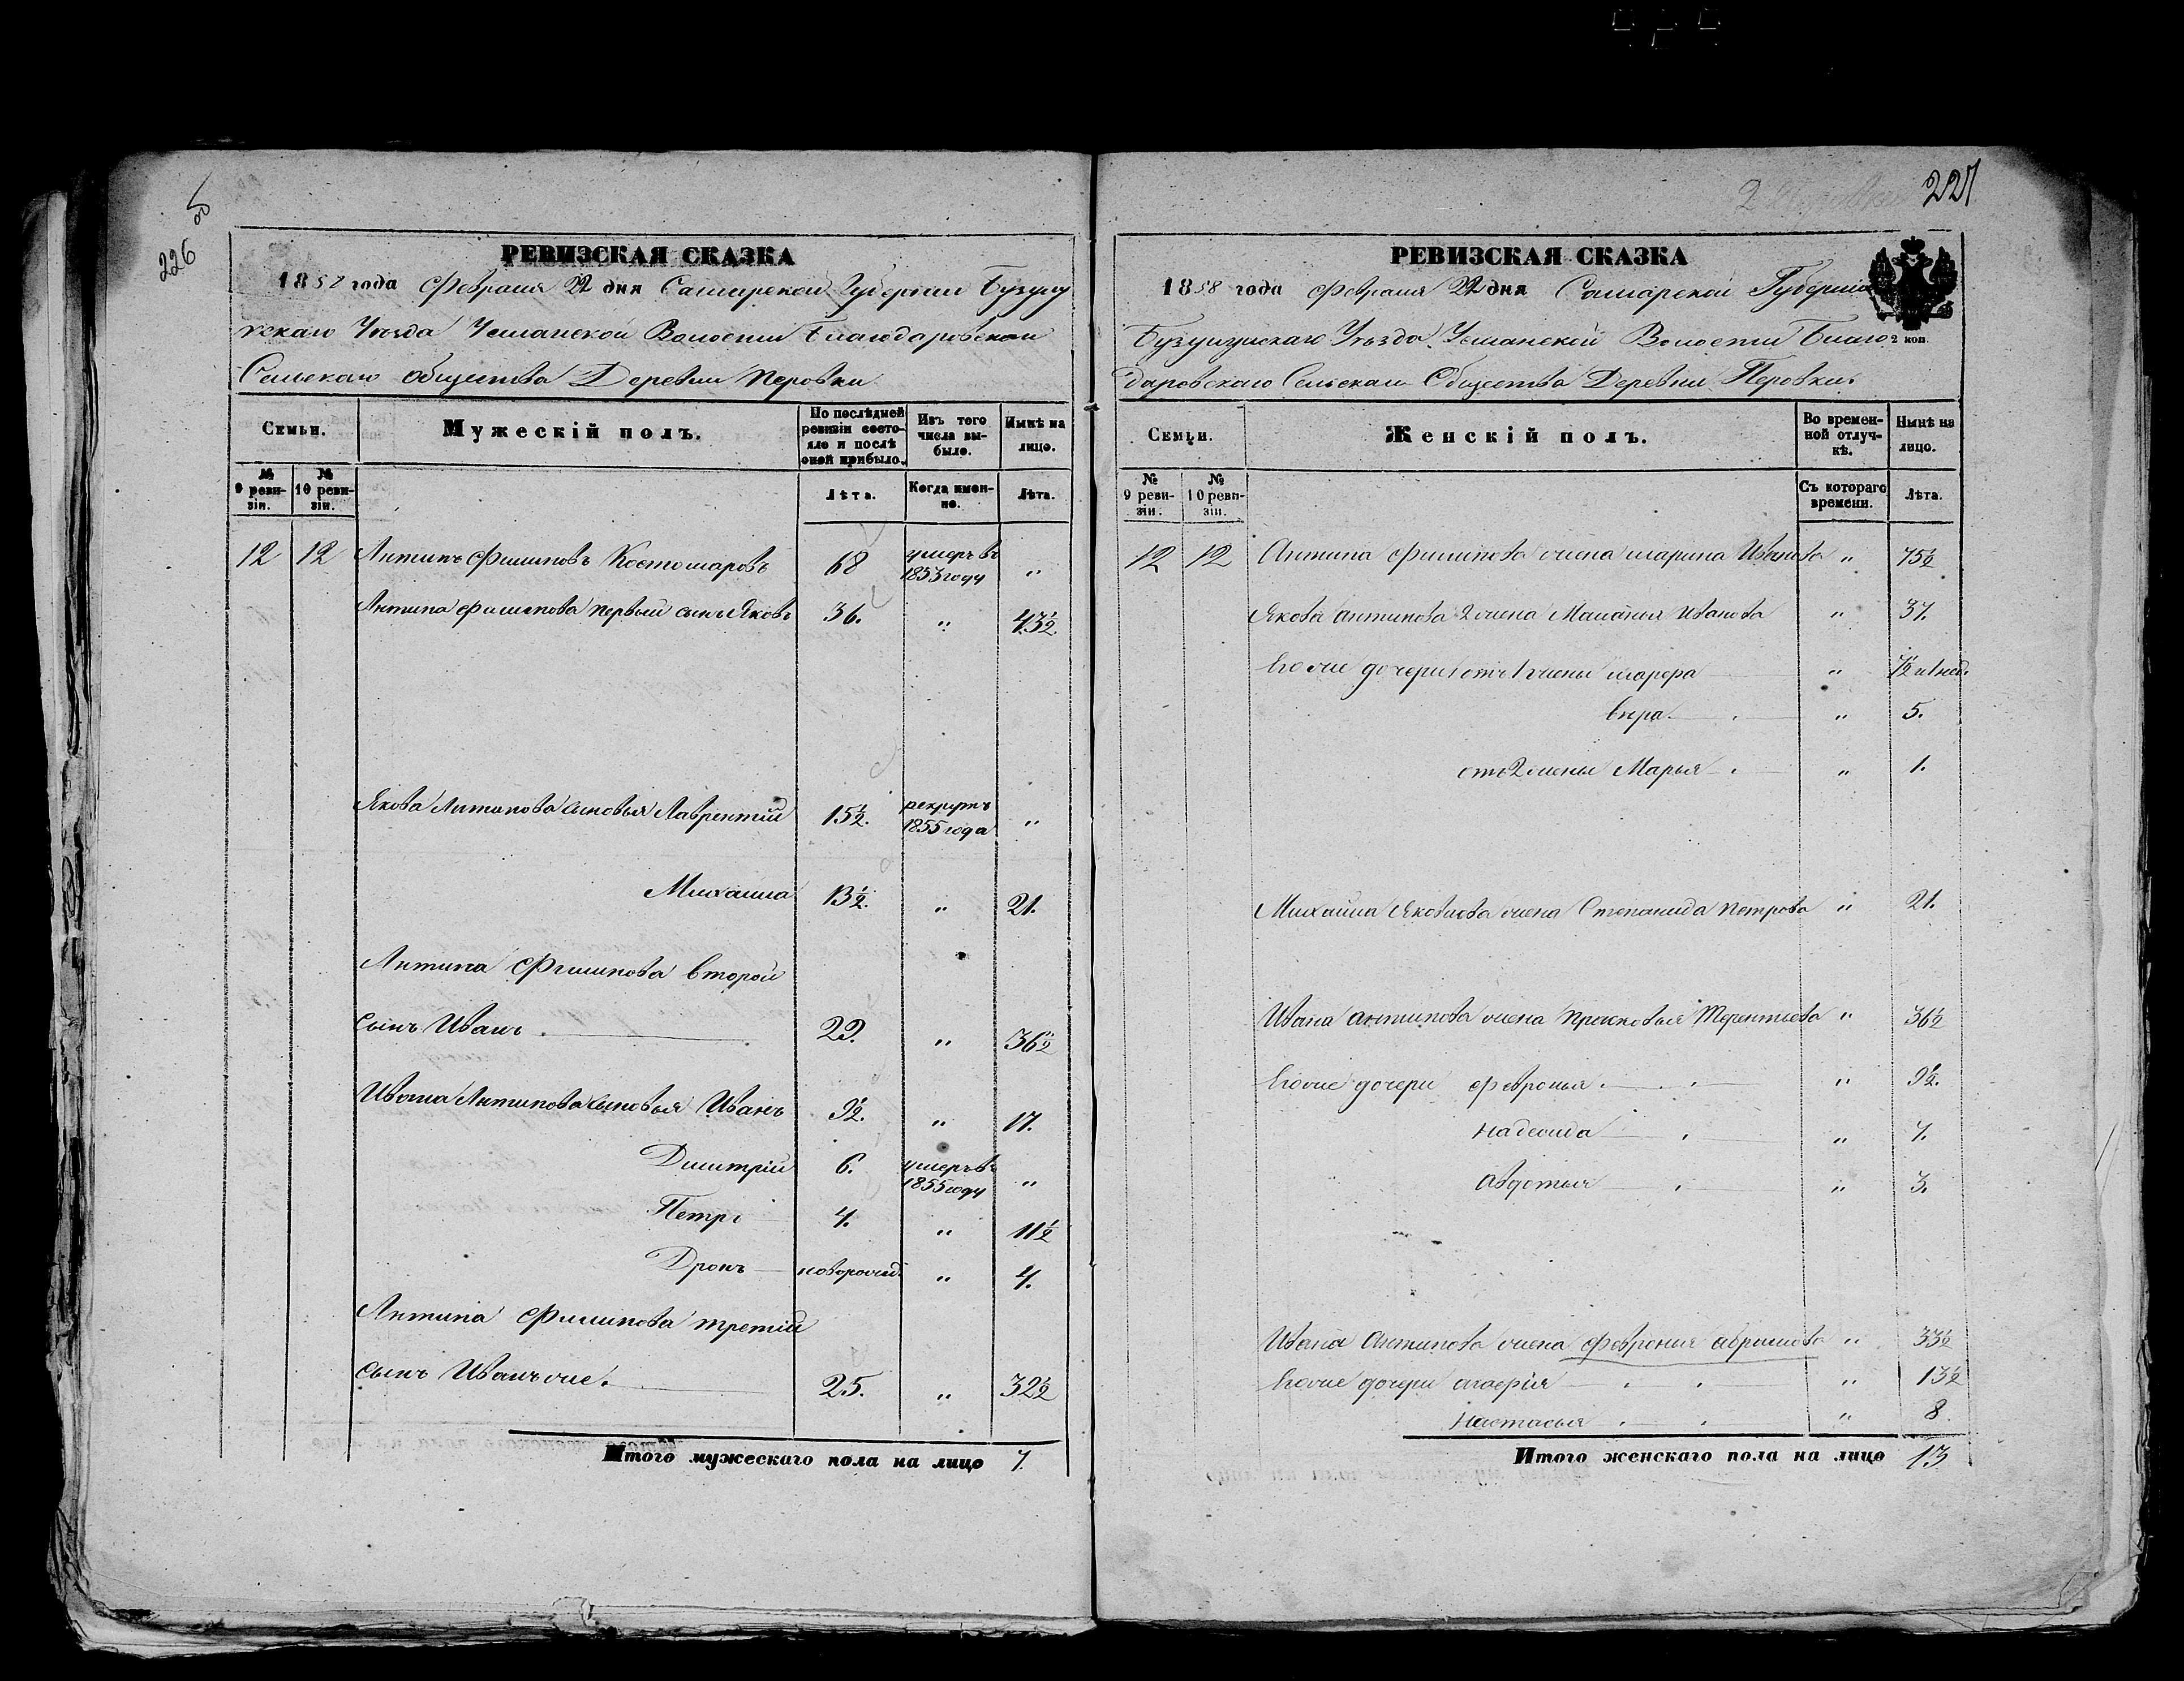 226 об
РЕВИЗСКАЯ СКАЗКА
1858 года Февраля 22 дня Самарской Губернии Бузулу
кскаго Уезда Усманской Волости Благодаровскаго
Сельскаго общества Деревни Перовки
Семьи. Мужескій полъ. По послѣдней ревизіи состояло и послѣ оной прибыло. Изъ того числа выбыло. Нынѣ на лицо.
№ 9 ревизіи. № 10 ревизіи. Лѣта. Когда именно. Лѣта.
12 12 Антипъ Филиповъ Костомаровъ 68 умеръ въ 1853 году "
Антипа филипова первый сынъ Яковъ 36. " 43½.
Якова Антипова сыновья Лаврентій 15½. рекрутъ 1855 года "
Михаила 13½. " 21.
Антипа Филипова второй
сынъ Иванъ 22. " 36½
Ивана Антипова сыновья Иванъ 9½. " 17.
Дмитрій 6. умеръ въ 1855 году "
Петръ 4. " 11½
Дронъ новорожд. " 4.
Антипа Филипова третій
сынъ Иванъ же. 25. " 32½
Итого мужескаго пола на лицо 7.
227
РЕВИЗСКАЯ СКАЗКА
1858 года февраля 22 дня Самарской Губерніи
Бузулукскаго Уѣзда Усманской Волости Благо
2 коп.
даровскаго Сельскаго Общества Деревни Перовки.
Семьи. Женскій полъ. Во временной отлучкѣ. Нынѣ на лицо.
№ 9 ревизіи. № 10 ревизіи. Съ котораго времени. Лѣта.
12 12 Антипа филипова жена марина Иванова " 75½
Якова антипова 2 жена Маланья Иванова " 37.
Его же дочери от 1 жены марфа "
вера. " 5.
от 2 жены Марья " 1.
Михайла Яковлева жена Степанида петрова " 21.
Ивана антипова жена прасковья Терентьева " 36½
Его же дочери феврония " 9½.
надежда " 7.
авдотья " 3.
Ивана Антипова жена феврония абрамова " 33½
Его же дочери " 13½
настасья " 8.
Итого женскаго пола на лицо 13